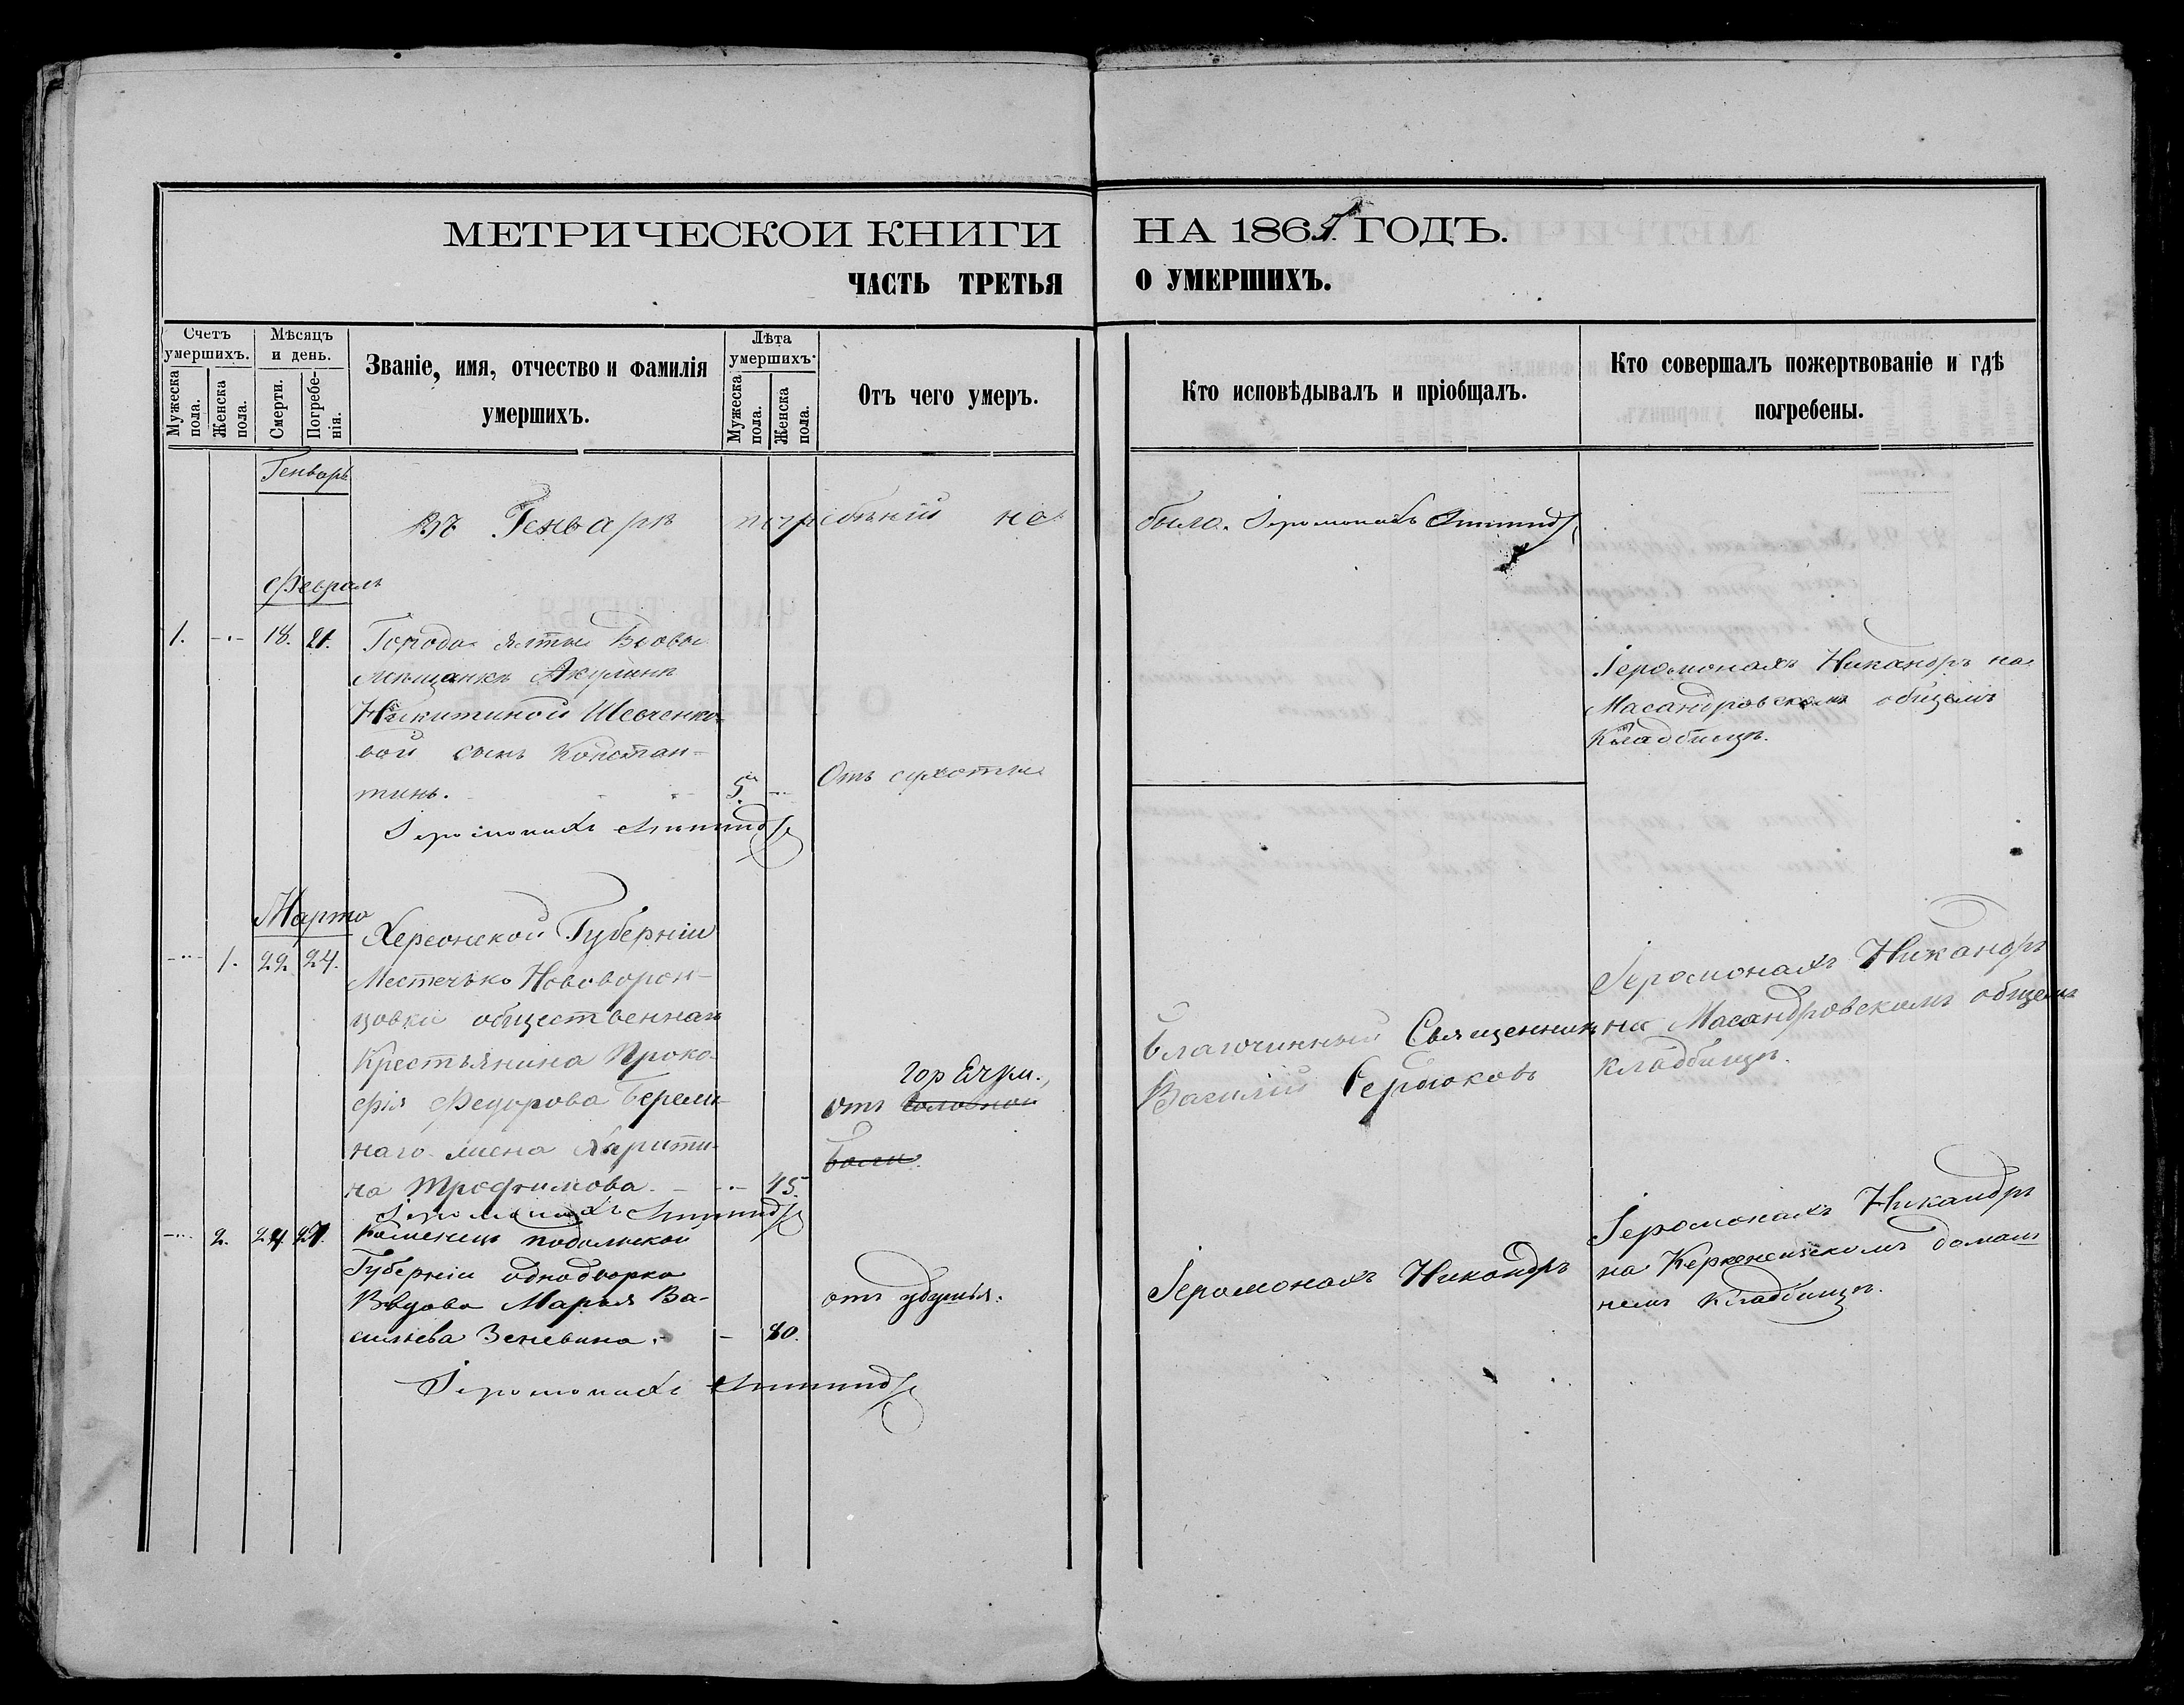 МЕТРИЧЕСКОЙ КНИГИ НА 1865 ГОДЪ.
ЧАСТЬ ТРЕТЬЯ О УМЕРШИХЪ.
Счетъ умершихъ.
Мужеска пола.
Женска пола.
Мѣсяцъ и день.
Смерти.
Погребенія.
Званіе, имя, отчество и фамилія
умершихъ.
Лѣта умершихъ.
Мужеска пола.
Женска пола.
Отъ чего умеръ.
Кто исповѣдывалъ и пріобщалъ.
Кто совершалъ пожертвованіе и гдѣ
погребены.
Генварь
Въ Генварѣ погребеній не было. Іеромонахъ
Февраль
1. 18. 21. Города Ялты Вдовы
Мещанкѣ Акулинѣ
Никитиной Шевченко-
вой сынъ Констан-
тинъ. 5. Отъ сухоты
Іеромонахъ Никандръ на
Масандровскомъ общемъ
Кладбищѣ.
Іеромонахъ
Мартъ
1. 22. 24. Херсонской Губерніи
Местечько Нововорон-
цовки общественнаго
Крестьянина Проко-
фія Федорова
наго жена Харити-
на Трофимова 45.
отъ головной
боли
Благочинный Священникъ
Василій Сердюковъ
Іеромонахъ Никандръ
на Масандровскомъ общемъ
кладбищѣ.
Іеромонахъ
2. 24. 27. Каменецъ подольской
Губерніи однодворка
Вдова Марья Ва-
сильева 80.
отъ удушья.
Іеромонахъ Никандръ
Іеромонахъ Никандръ
на домаш
немъ кладбищѣ.
Іеромонахъ